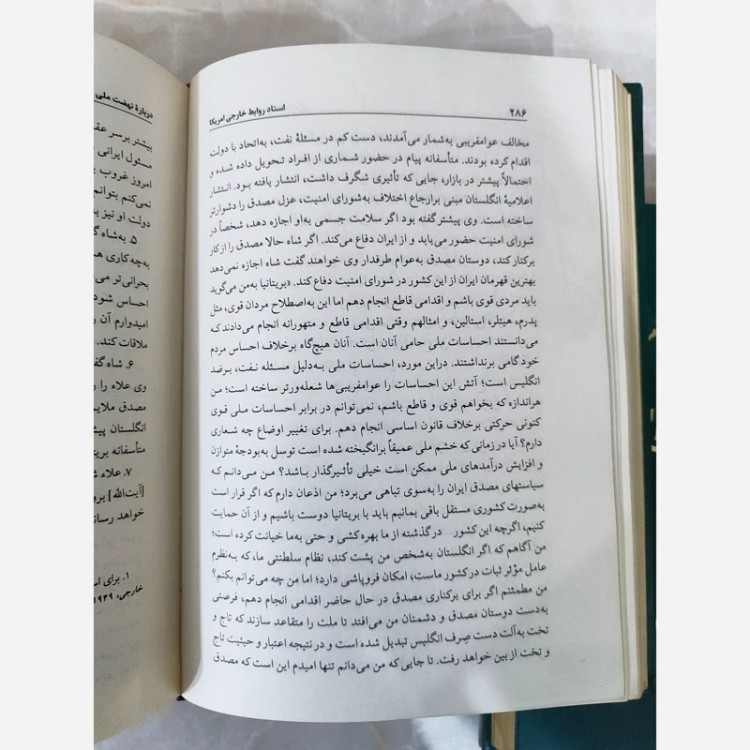 ۲۸۶
اسناد روابط خارجی امریکا
مخالف عوامفریبی به‌شمار می‌آمدند، دست کم در مسئلهٔ نفت، به‌اتحاد با دولت
اقدام کرده بودند. متأسفانه پیام در حضور شماری از افراد تحویل داده شده و
احتمالاً پیشتر در بازار، جایی که تأثیری شگرف داشت، انتشار یافته بود. انتشار
اعلامیهٔ انگلستان مبنی برارجاع اختلاف به‌شورای امنیت، عزل مصدق را دشوارتر
ساخته است. وی پیشتر گفته بود اگر سلامت جسمی به‌او اجازه دهد، شخصاً در
شورای امنیت حضور می‌یابد و از ایران دفاع می‌کند. اگر شاه حالا مصدق را از کار
برکنار کند، دوستان مصدق به‌عوام طرفدار وی خواهند گفت شاه اجازه نمی‌دهد
بهترین قهرمان ایران از این کشور در شورای امنیت دفاع کند. «بریتانیا به‌من می‌گوید
باید مردی قوی باشم و اقدامی قاطع انجام دهم اما این به‌اصطلاح مردان قوی، مثل
پدرم، هیتلر، استالین، و امثالهم وقتی اقدامی قاطع و متهورانه انجام می‌دادند که
می‌دانستند احساسات ملی حامی آنان است. آنان هیچ‌گاه برخلاف احساس مردم
خود گامی برنداشتند. دراین مورد، احساسات ملی به‌دلیل مسئله نفت، برضد
انگلیس است؛ آتش این احساسات را عوامفریبی‌ها شعله‌ورتر ساخته است؛ من
هراندازه که بخواهم قوی و قاطع باشم، نمی‌توانم در برابر احساسات ملی قوی
کنونی حرکتی برخلاف قانون اساسی انجام دهم. برای تغییر اوضاع چه شعاری
دارم؟ آیا در زمانی که خشم ملی عمیقاً برانگیخته شده است توسل به‌بودجهٔ متوازن
و افزایش درآمدهای ملی ممکن است خیلی تأثیرگذار باشد؟ من می‌دانم که
سیاستهای مصدق ایران را به‌سوی تباهی می‌برد؛ من اذعان دارم که اگر قرار است
به‌صورت کشوری مستقل باقی بمانیم باید با بریتانیا دوست باشیم و از آن حمایت
کنیم، اگرچه این کشور درگذشته از ما بهره‌کشی و حتی به‌ما خیانت کرده است؛
من آگاهم که اگر انگلستان به‌شخص من پشت کند، نظام سلطنتی ما، که به‌نظرم
عامل مؤثر ثبات در کشور ماست، امکان فروپاشی دارد؛ اما من چه می‌توانم بکنم؟
من مطمئنم اگر برای برکناری مصدق در حال حاضر اقدامی انجام دهم، فرصتی
به‌دست دوستان مصدق و دشمنان من می‌افتد تا ملت را متقاعد سازند که تاج و
تخت به‌آلت دست صِرف انگلیس تبدیل شده است و در نتیجه اعتبار و حیثیت تاج
و تخت از بین خواهد رفت. تا جایی که من می‌دانم تنها امیدم این است که مصدق
دربارهٔ نهضت ملی
بیشتر برسر عق
مسئول ایرانی
امروز غروب
نمی‌کنم بتوانم
دولت او نیز
۵. به‌شاه گ
به‌چه کاری ه
بحرانی‌تر می
احساس شود
امیدوارم آن
ملاقات کند.
۶. شاه گف
وی علاء را
مصدق ملایم
انگلستان پیش
متأسفانه بریتا
۷. علاء ش
[آیت‌الله] برو
خواهد رساند
۱. برای اس
خارجی، ۱۹۳۹